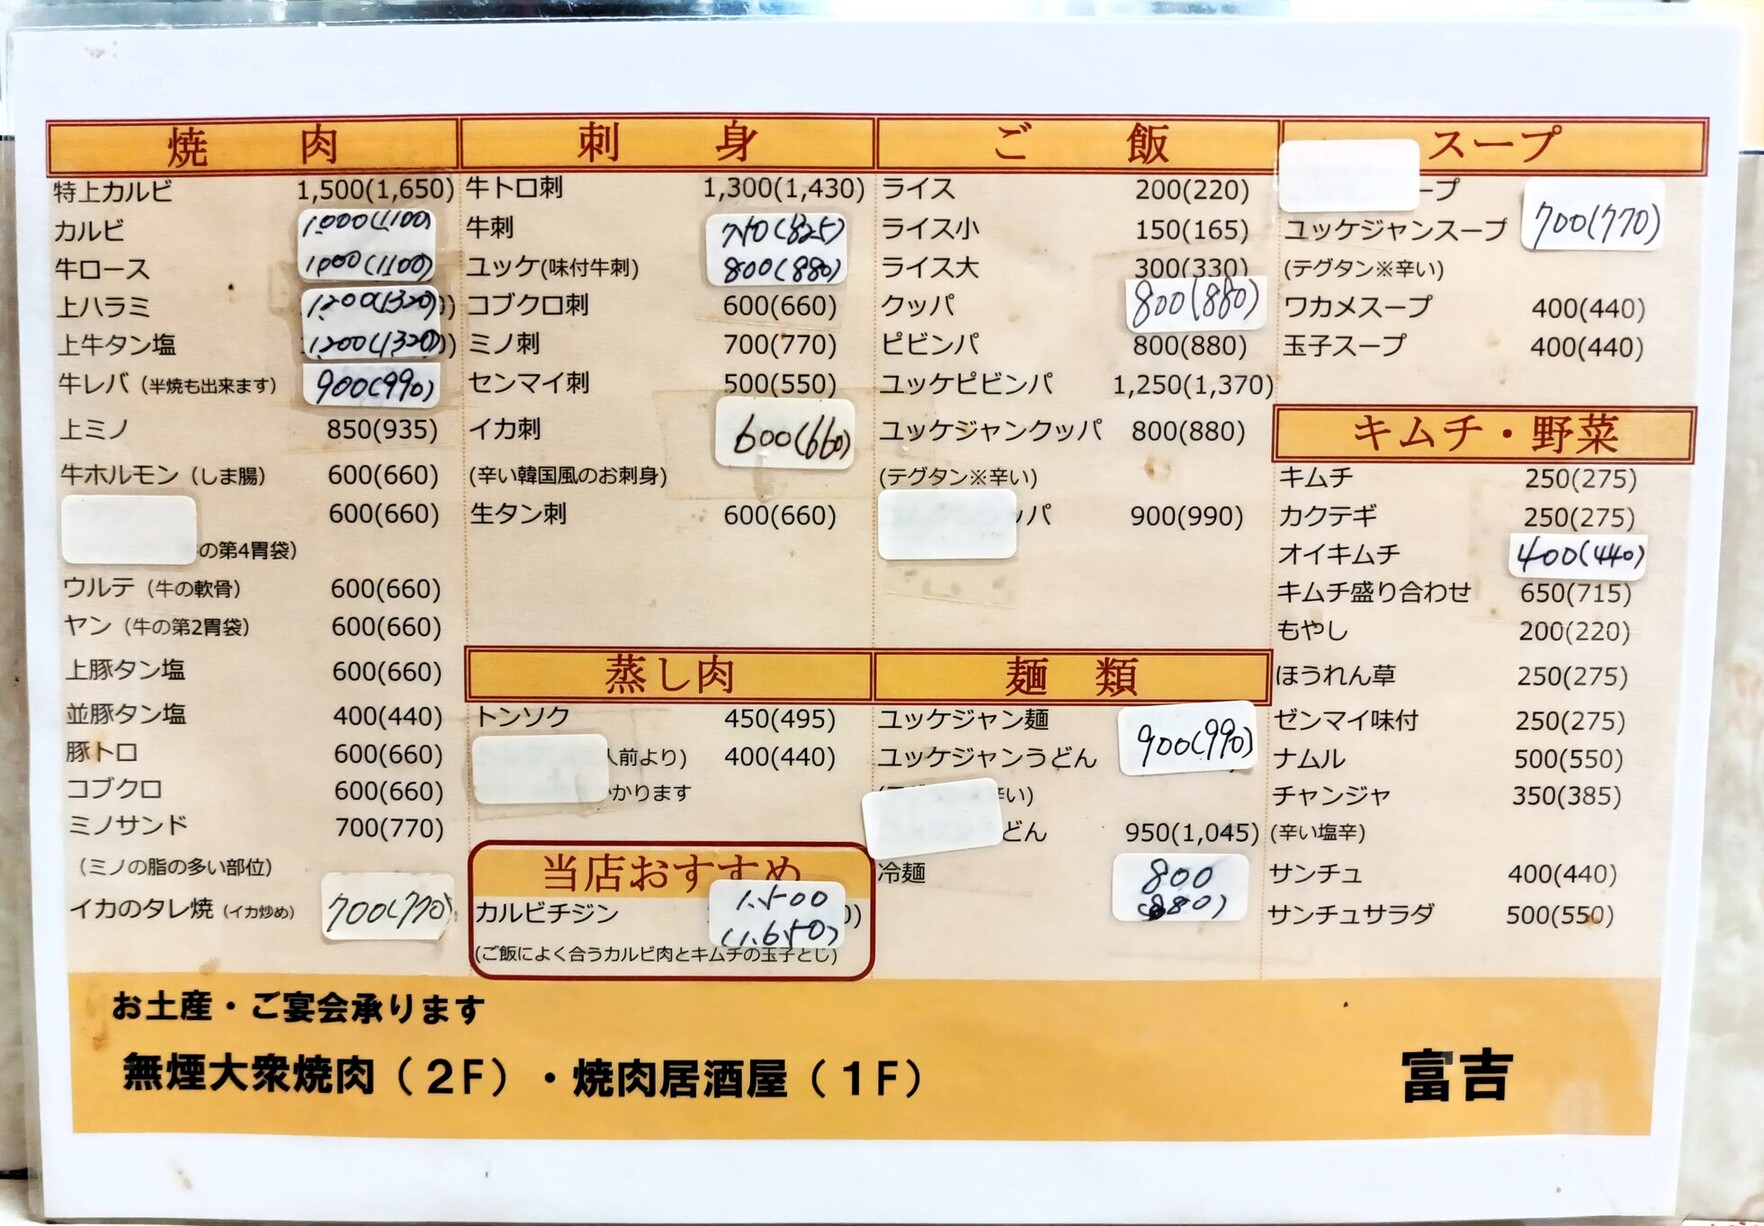 焼肉
特上カルビ 1,500(1,650)
カルビ 1,000(1,100)
牛ロース 1,000(1,100)
上ハラミ 1,200(1,320)
上牛タン塩 1,200(1,320)
牛レバ（半焼も出来ます） 900(990)
上ミノ 850(935)
牛ホルモン（しま腸） 600(660)
600(660)
の第4胃袋）
ウルテ（牛の軟骨） 600(660)
ヤン（牛の第2胃袋） 600(660)
上豚タン塩 600(660)
並豚タン塩 400(440)
豚トロ 600(660)
コブクロ 600(660)
ミノサンド 700(770)
（ミノの脂の多い部位）
イカのタレ焼（イカ炒め） 700(770)
刺身
牛トロ刺 1,300(1,430)
牛刺 750(825)
ユッケ(味付牛刺) 800(880)
コブクロ刺 600(660)
ミノ刺 700(770)
センマイ刺 500(550)
イカ刺 600(660)
(辛い韓国風のお刺身)
生タン刺 600(660)
蒸し肉
トンソク 450(495)
人前より) 400(440)
かります
当店おすすめ
カルビチジン 1,500
(1,650)
(ご飯によく合うカルビ肉とキムチの玉子とじ)
ご飯
ライス 200(220)
ライス小 150(165)
ライス大 300(330)
クッパ 800(880)
ピビンパ 800(880)
ユッケピビンパ 1,250(1,370)
ユッケジャンクッパ 800(880)
(テグタン※辛い)
ッパ 900(990)
麺類
ユッケジャン麺 900(990)
ユッケジャンうどん
辛い)
どん 950(1,045)
冷麺 800
(880)
スープ
ープ
ユッケジャンスープ 700(770)
(テグタン※辛い)
ワカメスープ 400(440)
玉子スープ 400(440)
キムチ・野菜
キムチ 250(275)
カクテギ 250(275)
オイキムチ 400(440)
キムチ盛り合わせ 650(715)
もやし 200(220)
ほうれん草 250(275)
ゼンマイ味付 250(275)
ナムル 500(550)
チャンジャ 350(385)
(辛い塩辛)
サンチュ 400(440)
サンチュサラダ 500(550)
お土産・ご宴会承ります
無煙大衆焼肉（２F）・焼肉居酒屋（１F） 富吉